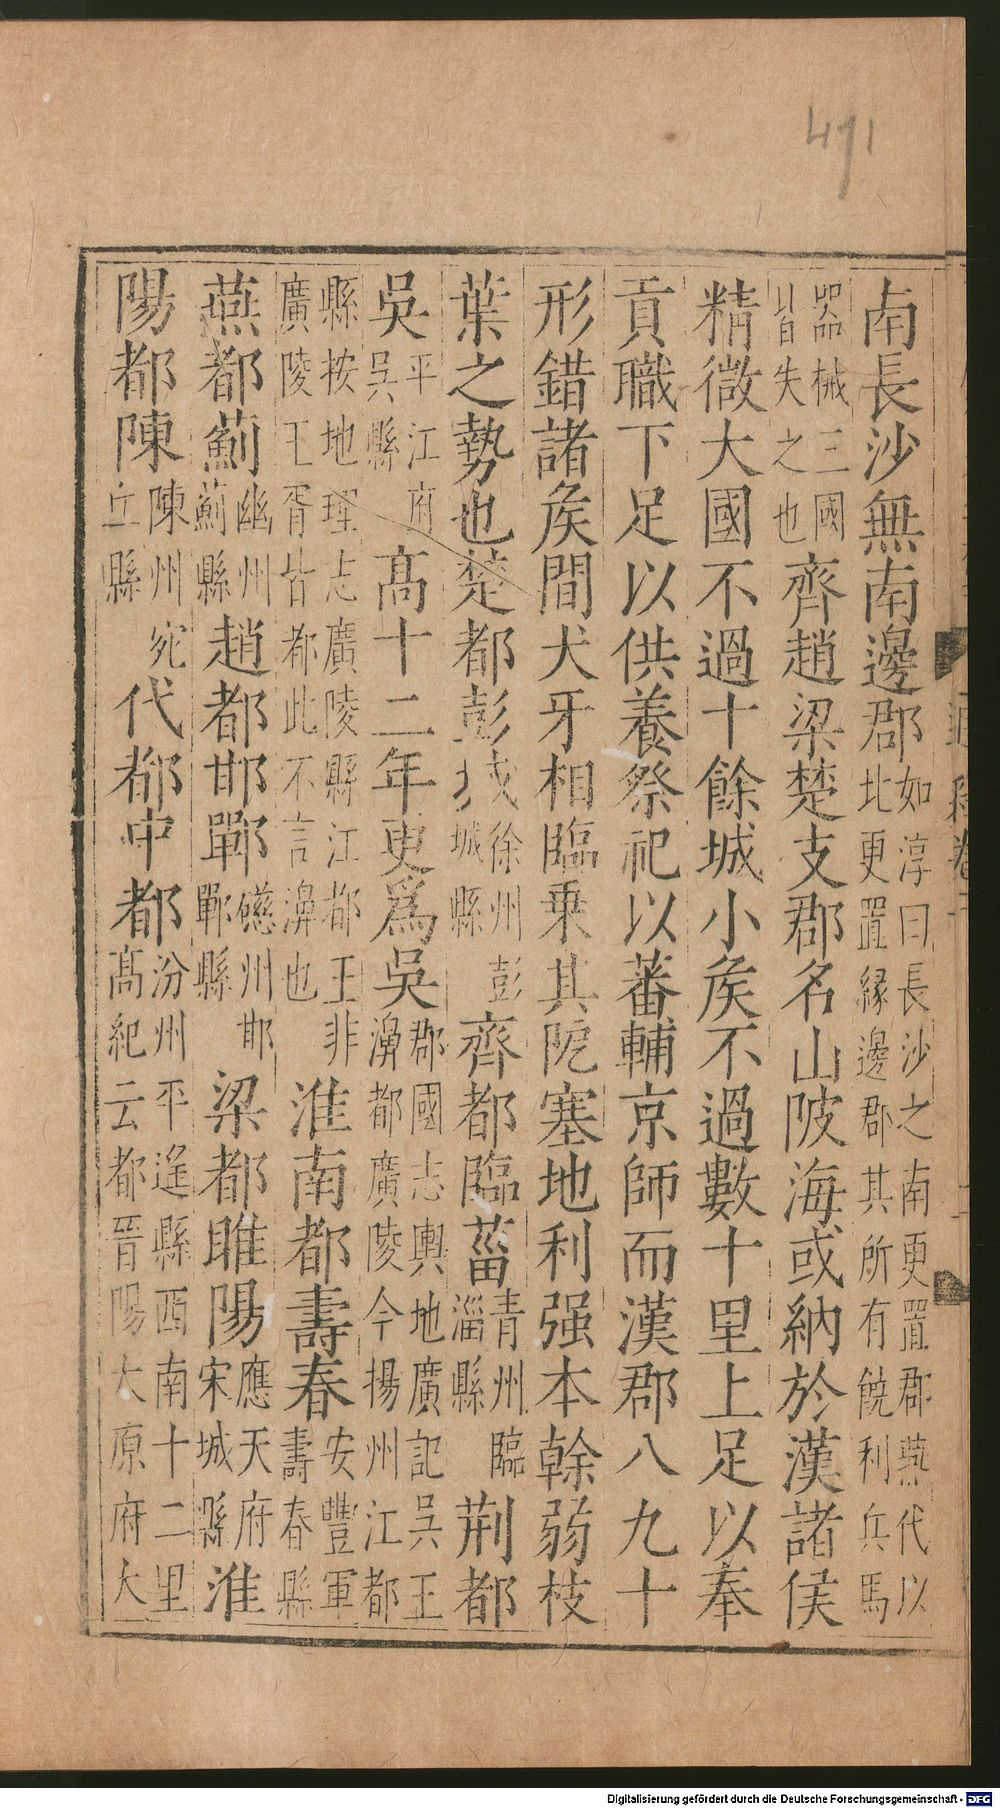 491
南長沙無南邊郡如淳曰長沙之南更置郡燕代以北更置緣邊郡其所有饒利兵馬
器械三國皆失之也齊趙梁楚支郡名山陂海或納於漢諸侯
精微大國不過十餘城小矦不過數十里上足以奉
貢職下足以供養祭祀以蕃輔京師而漢郡八九十
形錯諸矦間犬牙相臨乗其阸塞地利强本幹弱枝
葉之勢也楚都彭城徐州彭城縣齊都臨菑青州臨淄縣荆都
吳平江府吳縣高十二年更爲吳郡國志輿地廣記吳王濞都廣陵今揚州江都
縣按地理志廣陵縣江都王非廣陵王胥皆都此不言濞也淮南都壽春安豐軍壽春縣
燕都薊幽州薊縣趙都邯鄲磁州邯鄲縣梁都睢陽應天府宋城縣淮
陽都陳陳州宛丘縣代都中都汾州平遙縣西南十二里高紀云都晉陽大原府大
Digitalisierung gefördert durch die Deutsche Forschungsgemeinschaft - DFG